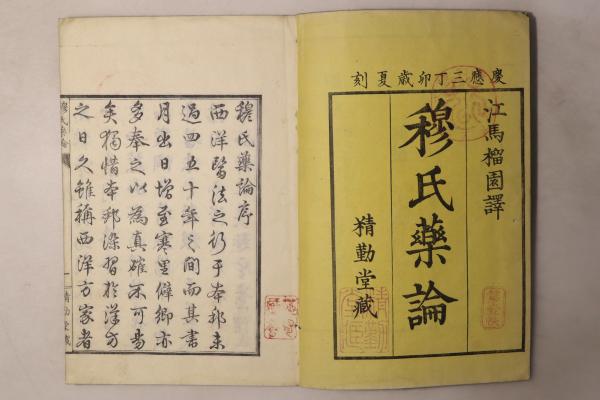 慶應三丁卯歳夏刻
江馬榴園譯
穆氏藥論
精勤堂藏
穆氏藥論序
西洋醫法之行于本邦未
過四五十年之間而其書
月出日增至寒里僻鄉亦
多奉之以為真確不可易
矣獨惜本邦染習於漢方
之日久雖稱西洋方家者
穆氏藥論
一
精勤堂藏